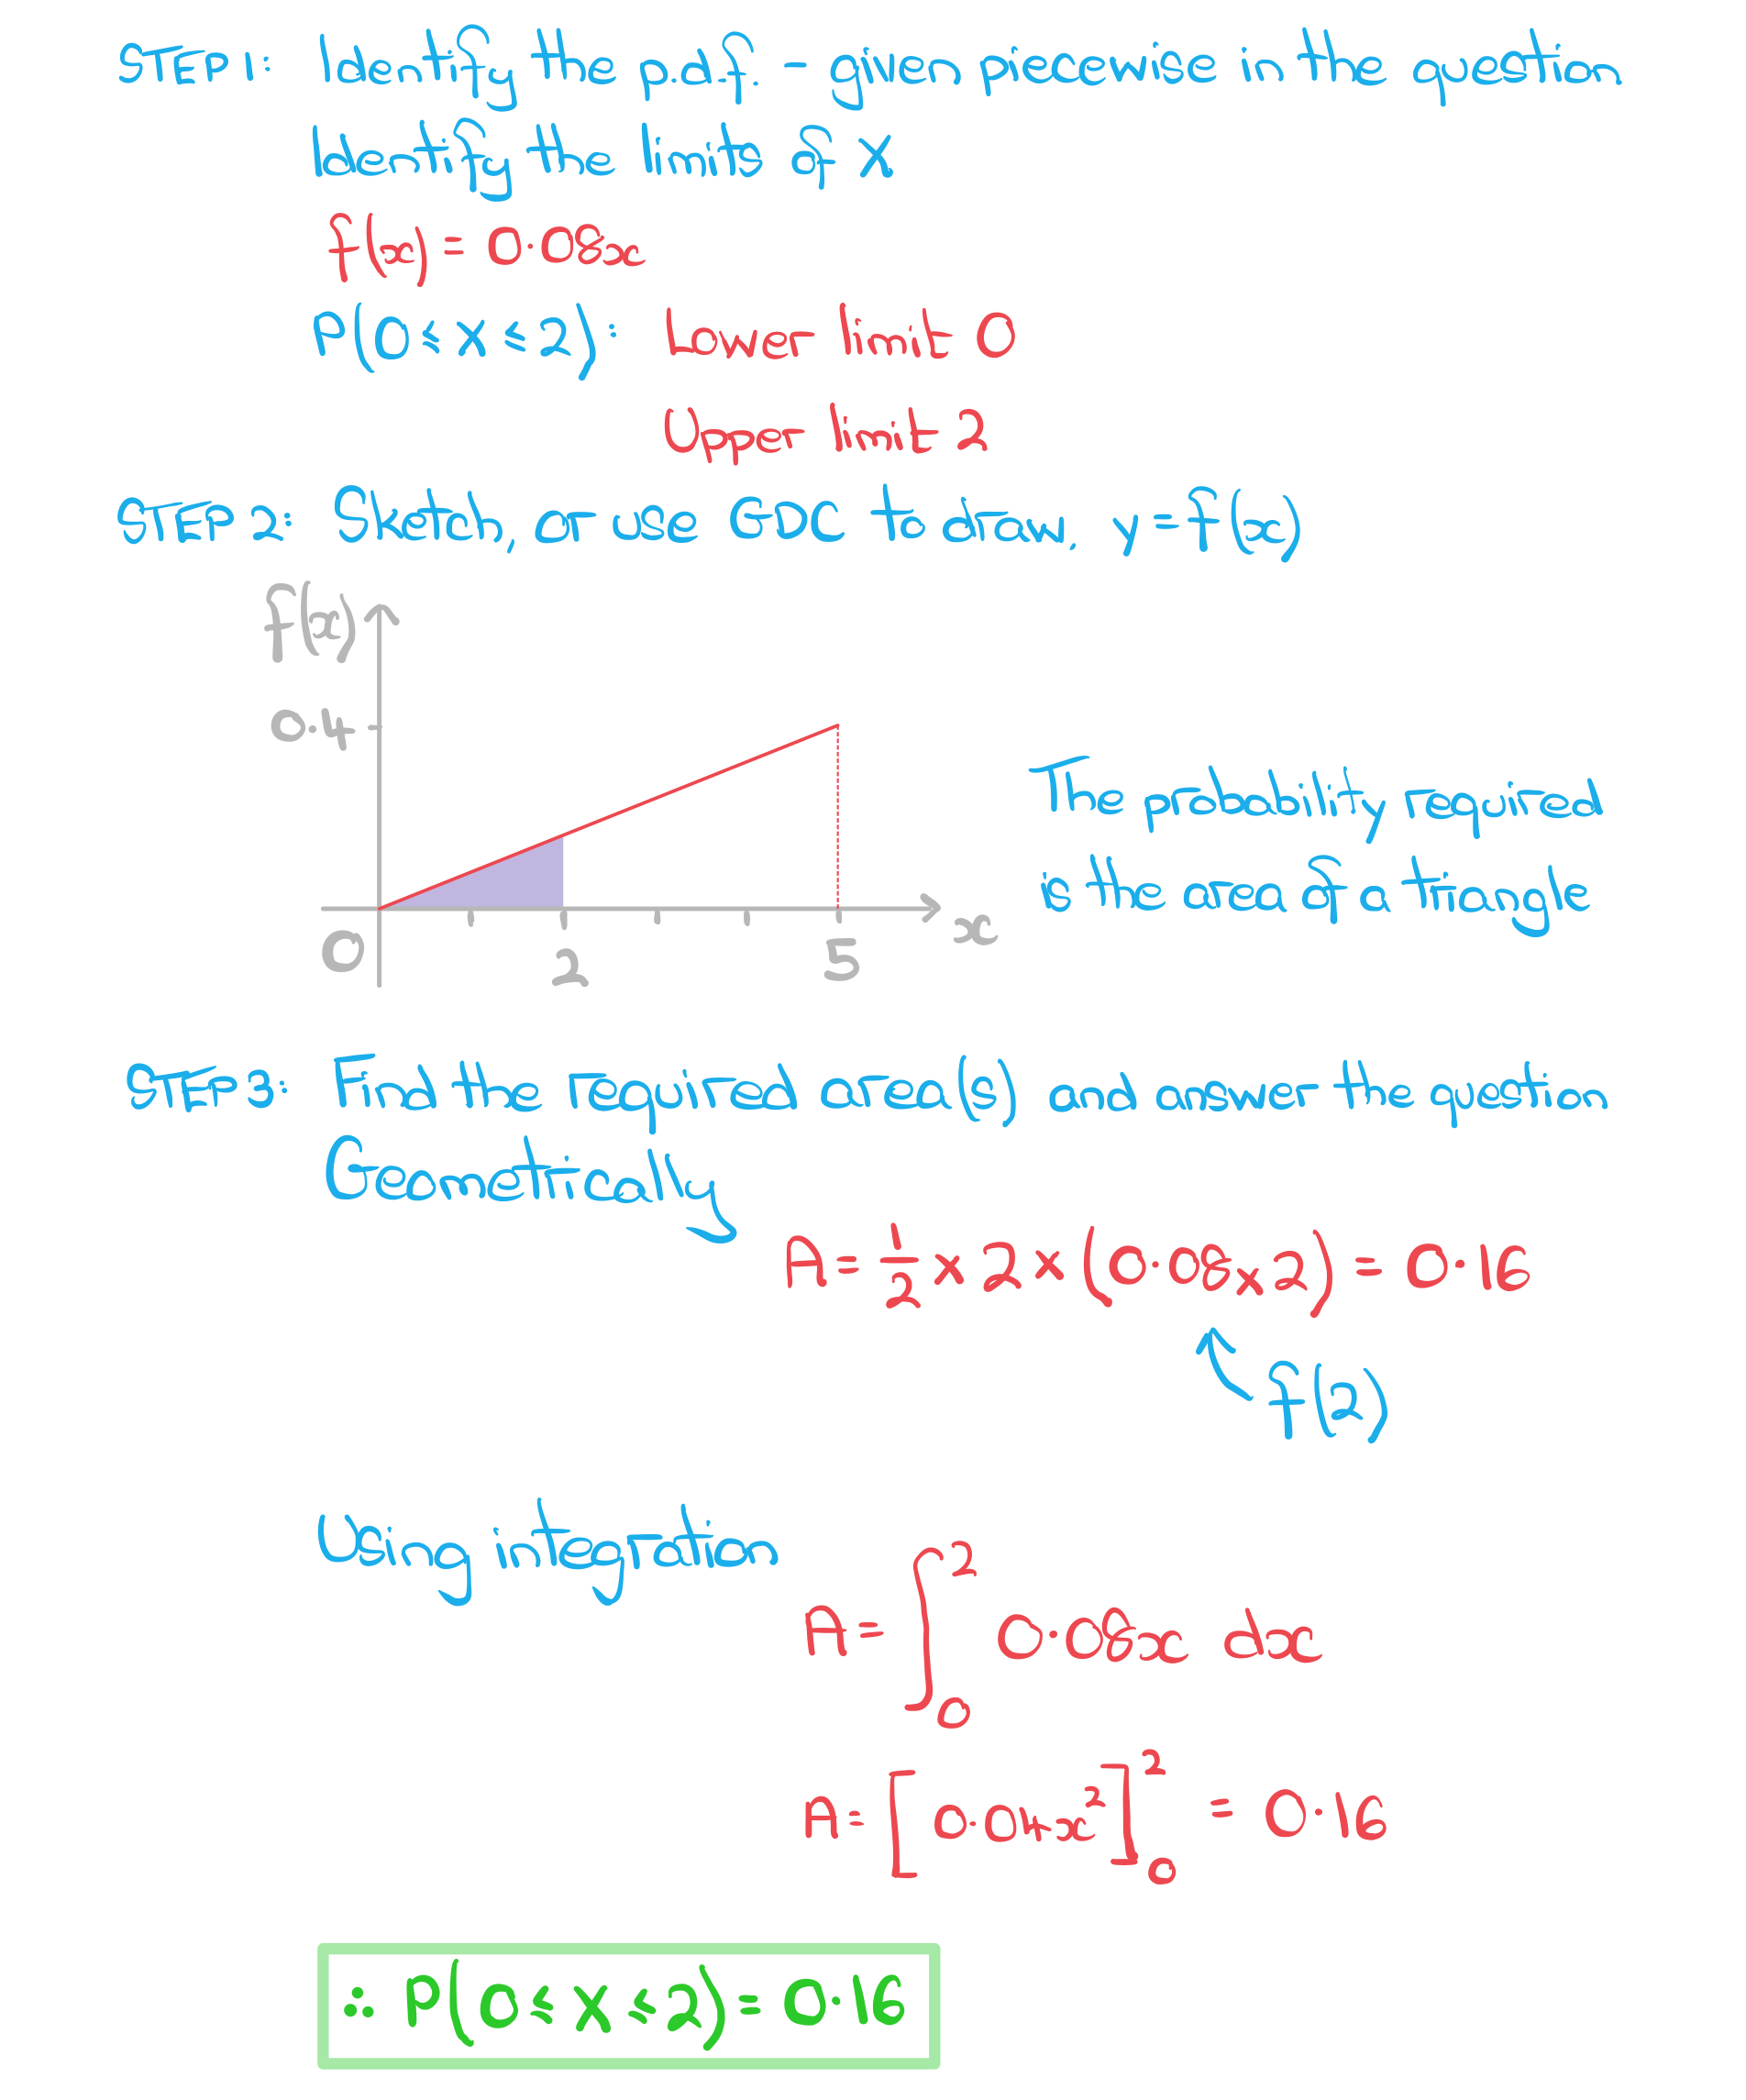 STEP 1: Identify the p.d.f. - given piecewise in the question
Identify the limits of X
f(x) = 0·08x
P(0 ≤ X ≤ 2): Lower limit 0
Upper limit 2
STEP 2: Sketch, or use GDC to draw, y = f(x)
f(x)
0·4
The probability required
is the area of a triangle
0
2
5
x
STEP 3: Find the required area(s) and answer the question
Geometrically
A = 1/2 × 2 × (0·08 × 2) = 0·16
f(2)
Using integration
A = ∫₀² 0·08x dx
A = [0·04x²]₀² = 0·16
∴ P(0 ≤ X ≤ 2) = 0·16